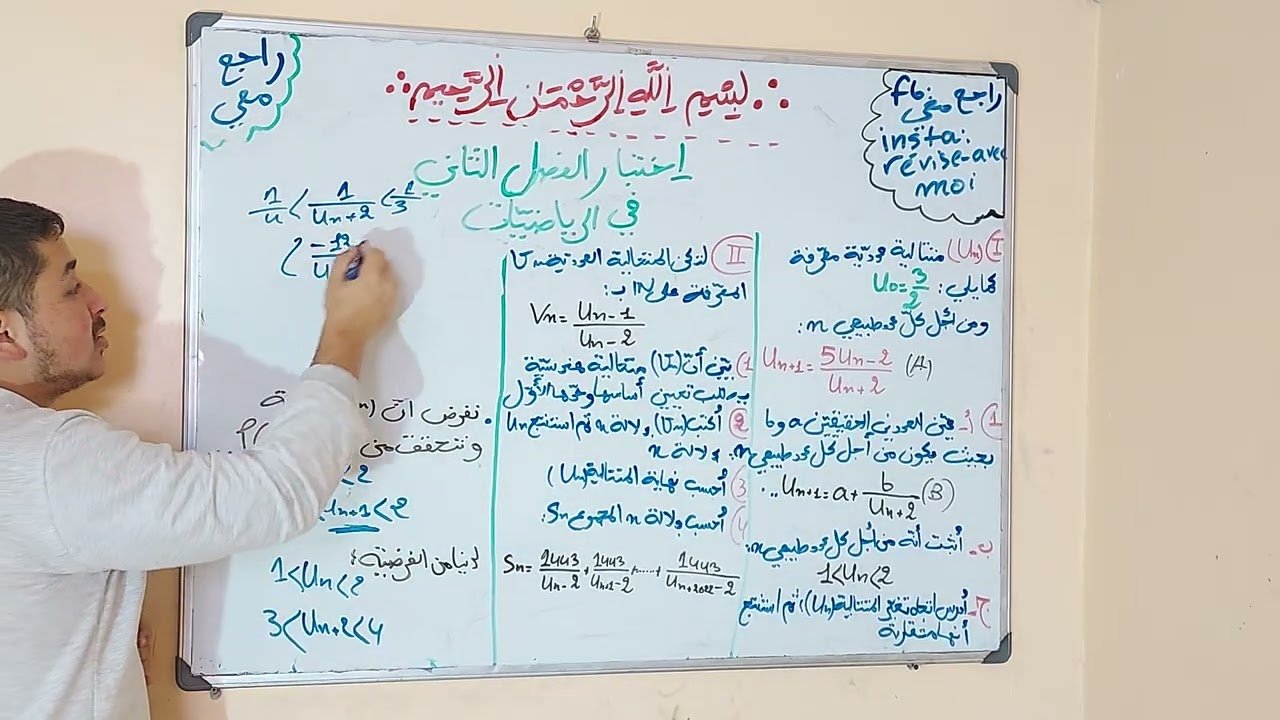 ∴ بسم الله الرحمن الرحيم ∴
راجع
معي
راجع
معي fb:
insta:
revise-avec
moi
اختبار الفصل الثاني
في الرياضيات
I) (Un) متتالية عددية معرفة
كما يلي: U0 = 3/2
ومن أجل كل عدد طبيعي n:
Un+1 = (5Un - 2)/(Un + 2) (A)
1) أ- عين العددين الحقيقيين a و b
بحيث يكون من أجل كل عدد طبيعي n:
Un+1 = a + b/(Un + 2) ... (B)
ب- أثبت أنه من أجل كل عدد طبيعي n:
1 < Un < 2
ج- أدرس اتجاه تغير المتتالية (Un)، ثم استنتج
أنها متقاربة
II) لتكن المتتالية العددية
المعرفة على IN بـ:
Vn = (Un - 1)/(Un - 2)
1) بين أن (Vn) متتالية هندسية
يطلب تعيين أساسها وحدها الأول
2) أكتب (Vn) بدلالة n ثم استنتج Un
بدلالة n
3) أحسب نهاية المتتالية (Un)
4) أحسب بدلالة n المجموع Sn:
Sn = 1443/(Un - 2) + 1443/(Un+1 - 2) + ..... + 1443/(Un+2022 - 2)
< 1/(Un + 2) < 1/3
نفرض أن
ونتحقق من
< 2
Un+1 < 2
لدينا من الفرضية:
1 < Un < 2
3 < Un + 2 < 4